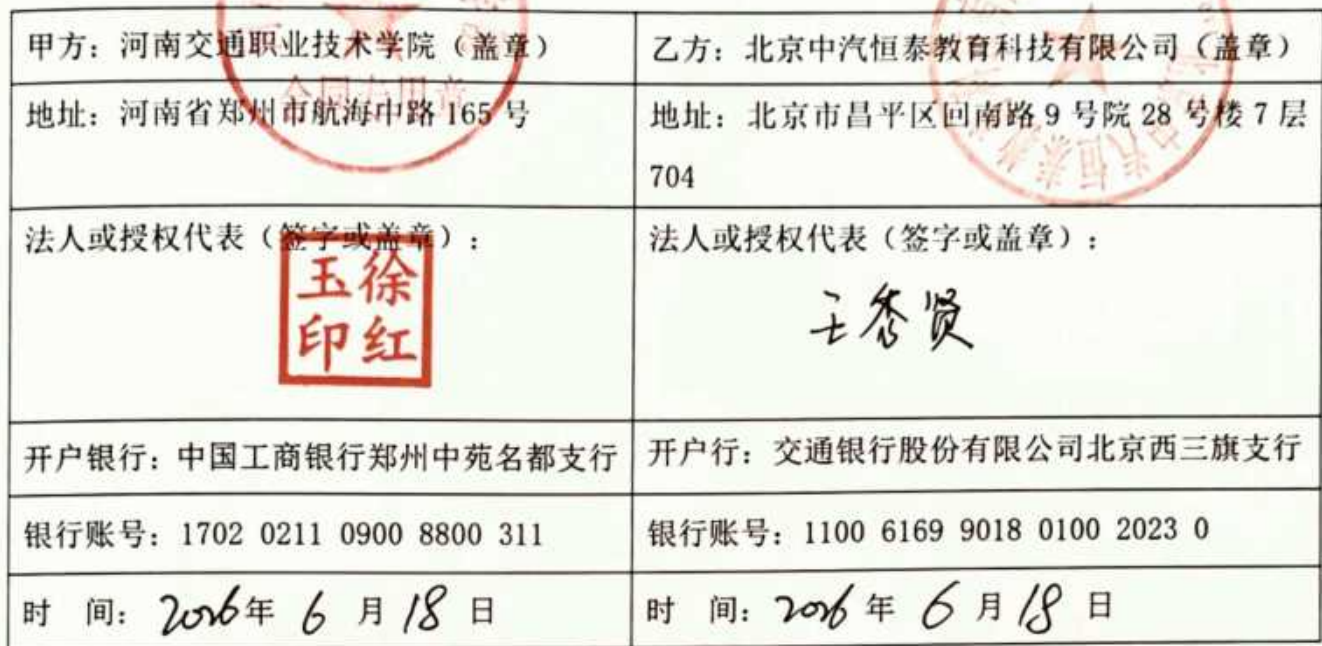 甲方：河南交通职业技术学院（盖章）
乙方：北京中汽恒泰教育科技有限公司（盖章）
合同专用章
地址：河南省郑州市航海中路 165 号
地址：北京市昌平区回南路 9 号院 28 号楼 7 层
704
中汽恒泰教
法人或授权代表（签字或盖章）：
徐红
玉印
法人或授权代表（签字或盖章）：
王秀贤
开户银行：中国工商银行郑州中苑名都支行
开户行：交通银行股份有限公司北京西三旗支行
银行账号：1702 0211 0900 8800 311
银行账号：1100 6169 9018 0100 2023 0
时 间：2026年 6 月 18 日
时 间：2026 年 6 月 18 日